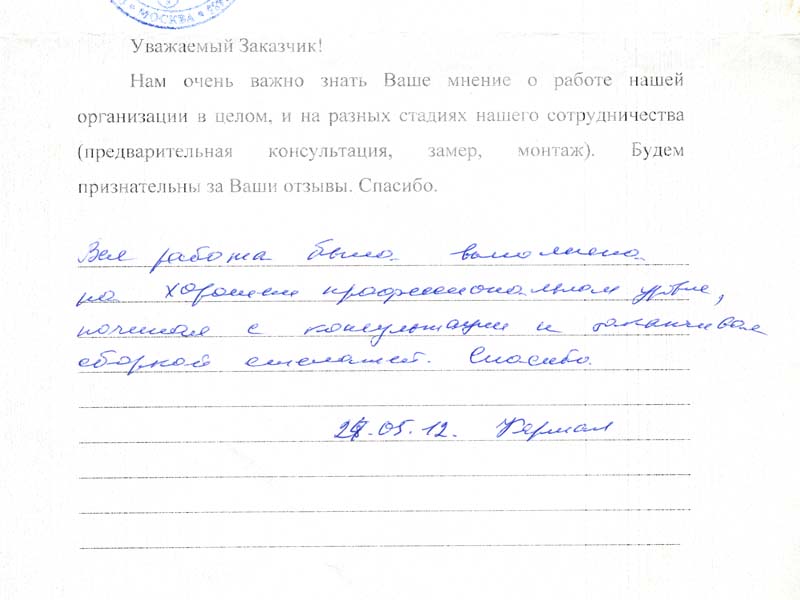 * МОСКВА *
Уважаемый Заказчик!
Нам очень важно знать Ваше мнение о работе нашей
организации в целом, и на разных стадиях нашего сотрудничества
(предварительная консультация, замер, монтаж). Будем
признательны за Ваши отзывы. Спасибо.
Вся работа была выполнена
на хорошем профессиональном уровне,
начиная с консультации и заканчивая
сборкой стеллажей. Спасибо.
05.12.